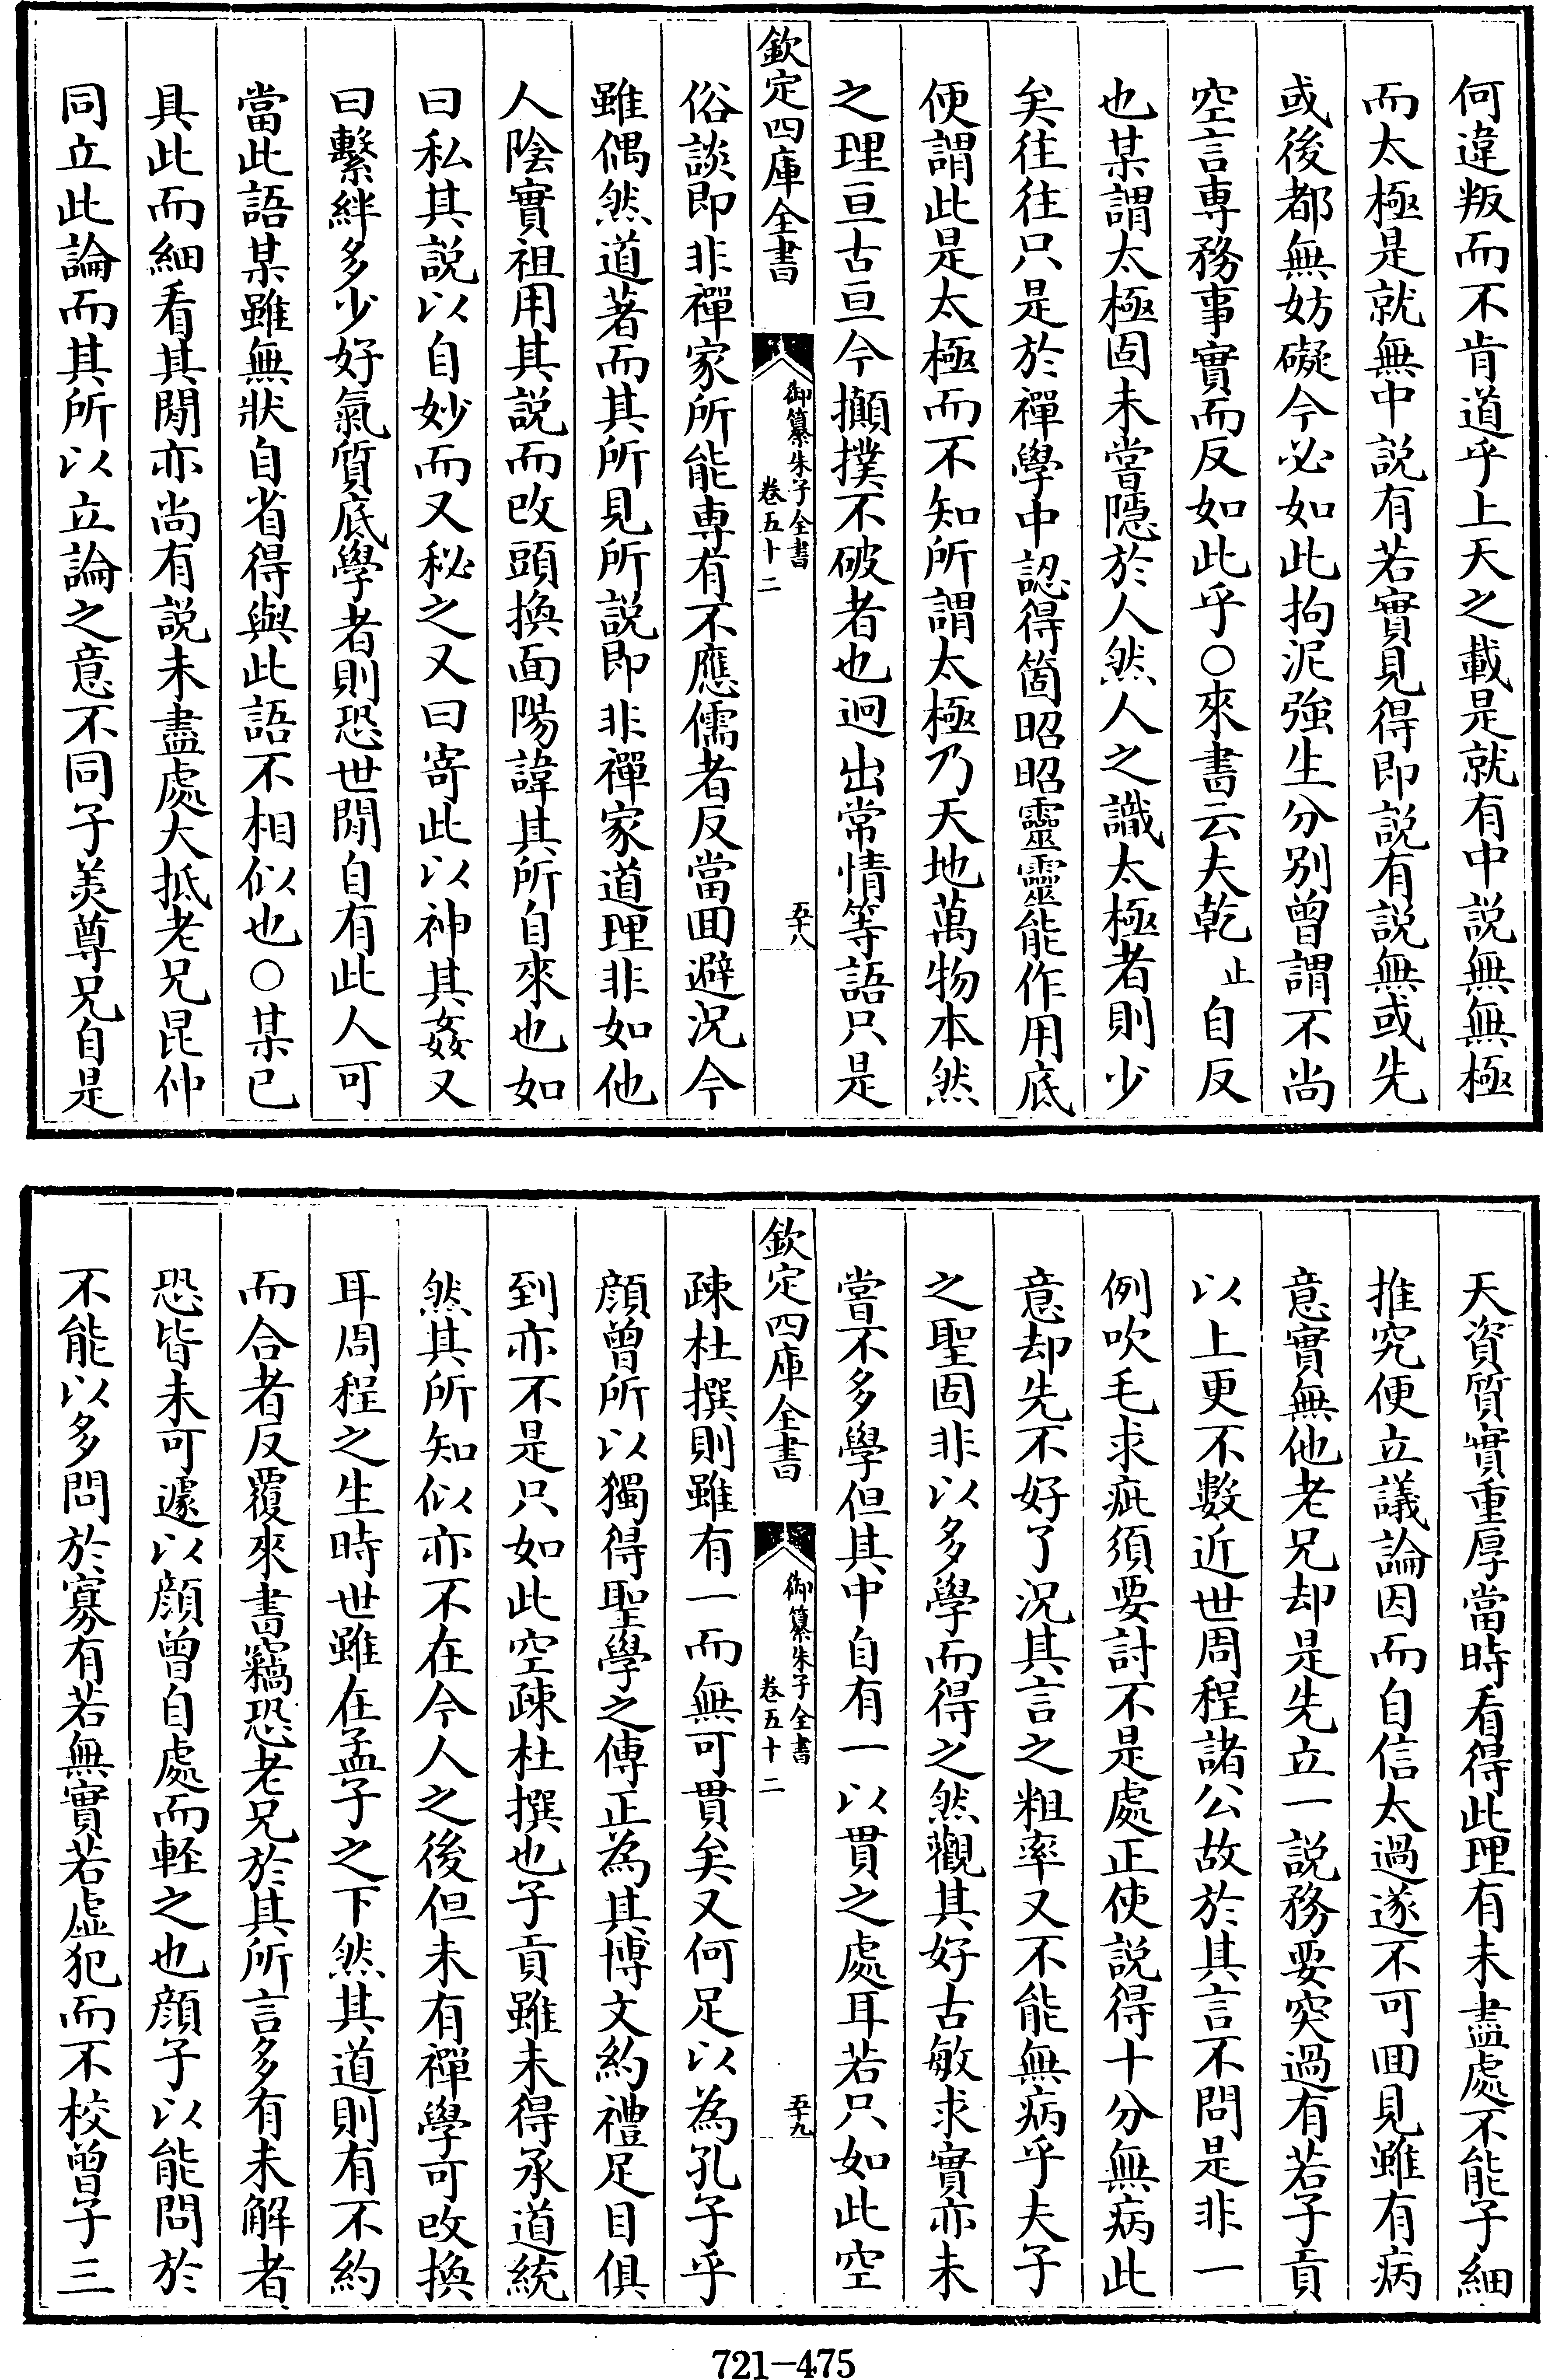 何違叛而不肯道乎上天之載是就有中説無無極
而太極是就無中説有若實見得即説有説無或先
或後都無妨礙今必如此拘泥強生分别曾謂不尚
空言専務事實而反如此乎○來書云夫乾止自反
也某謂太極固未嘗隱於人然人之識太極者則少
矣往往只是於禪學中認得箇昭昭靈靈能作用底
便謂此是太極而不知所謂太極乃天地萬物本然
之理亘古亘今攧撲不破者也迥出常情等語只是
欽定四庫全書
御纂朱子全書
卷五十二
五十八
俗談即非禪家所能専有不應儒者反當囬避况今
雖偶然道著而其所見所説即非禪家道理非如他
人陰實祖用其説而改頭換面陽諱其所自來也如
曰私其説以自妙而又秘之又曰寄此以神其姦又
曰繫絆多少好氣質底學者則恐世間自有此人可
當此語某雖無狀自省得與此語不相似也○某已
具此而細看其間亦尚有説未盡處大抵老兄昆仲
同立此論而其所以立論之意不同子美尊兄自是
天資質實重厚當時看得此理有未盡處不能子細
推究便立議論因而自信太過遂不可囬見雖有病
意實無他老兄却是先立一説務要突過有若子貢
以上更不數近世周程諸公故於其言不問是非一
例吹毛求疵須要討不是處正使説得十分無病此
意却先不好了况其言之粗率又不能無病乎夫子
之聖固非以多學而得之然觀其好古敏求實亦未
嘗不多學但其中自有一以貫之處耳若只如此空
欽定四庫全書
御纂朱子全書
卷五十二
五十九
疎杜撰則雖有一而無可貫矣又何足以為孔子乎
顔曾所以獨得聖學之傳正為其博文約禮足目俱
到亦不是只如此空疎杜撰也子貢雖未得承道統
然其所知似亦不在今人之後但未有禪學可改換
耳周程之生時世雖在孟子之下然其道則有不約
而合者反覆來書竊恐老兄於其所言多有未解者
恐皆未可遽以顔曾自處而輕之也顔子以能問於
不能以多問於寡有若無實若虛犯而不校曾子三
721-475